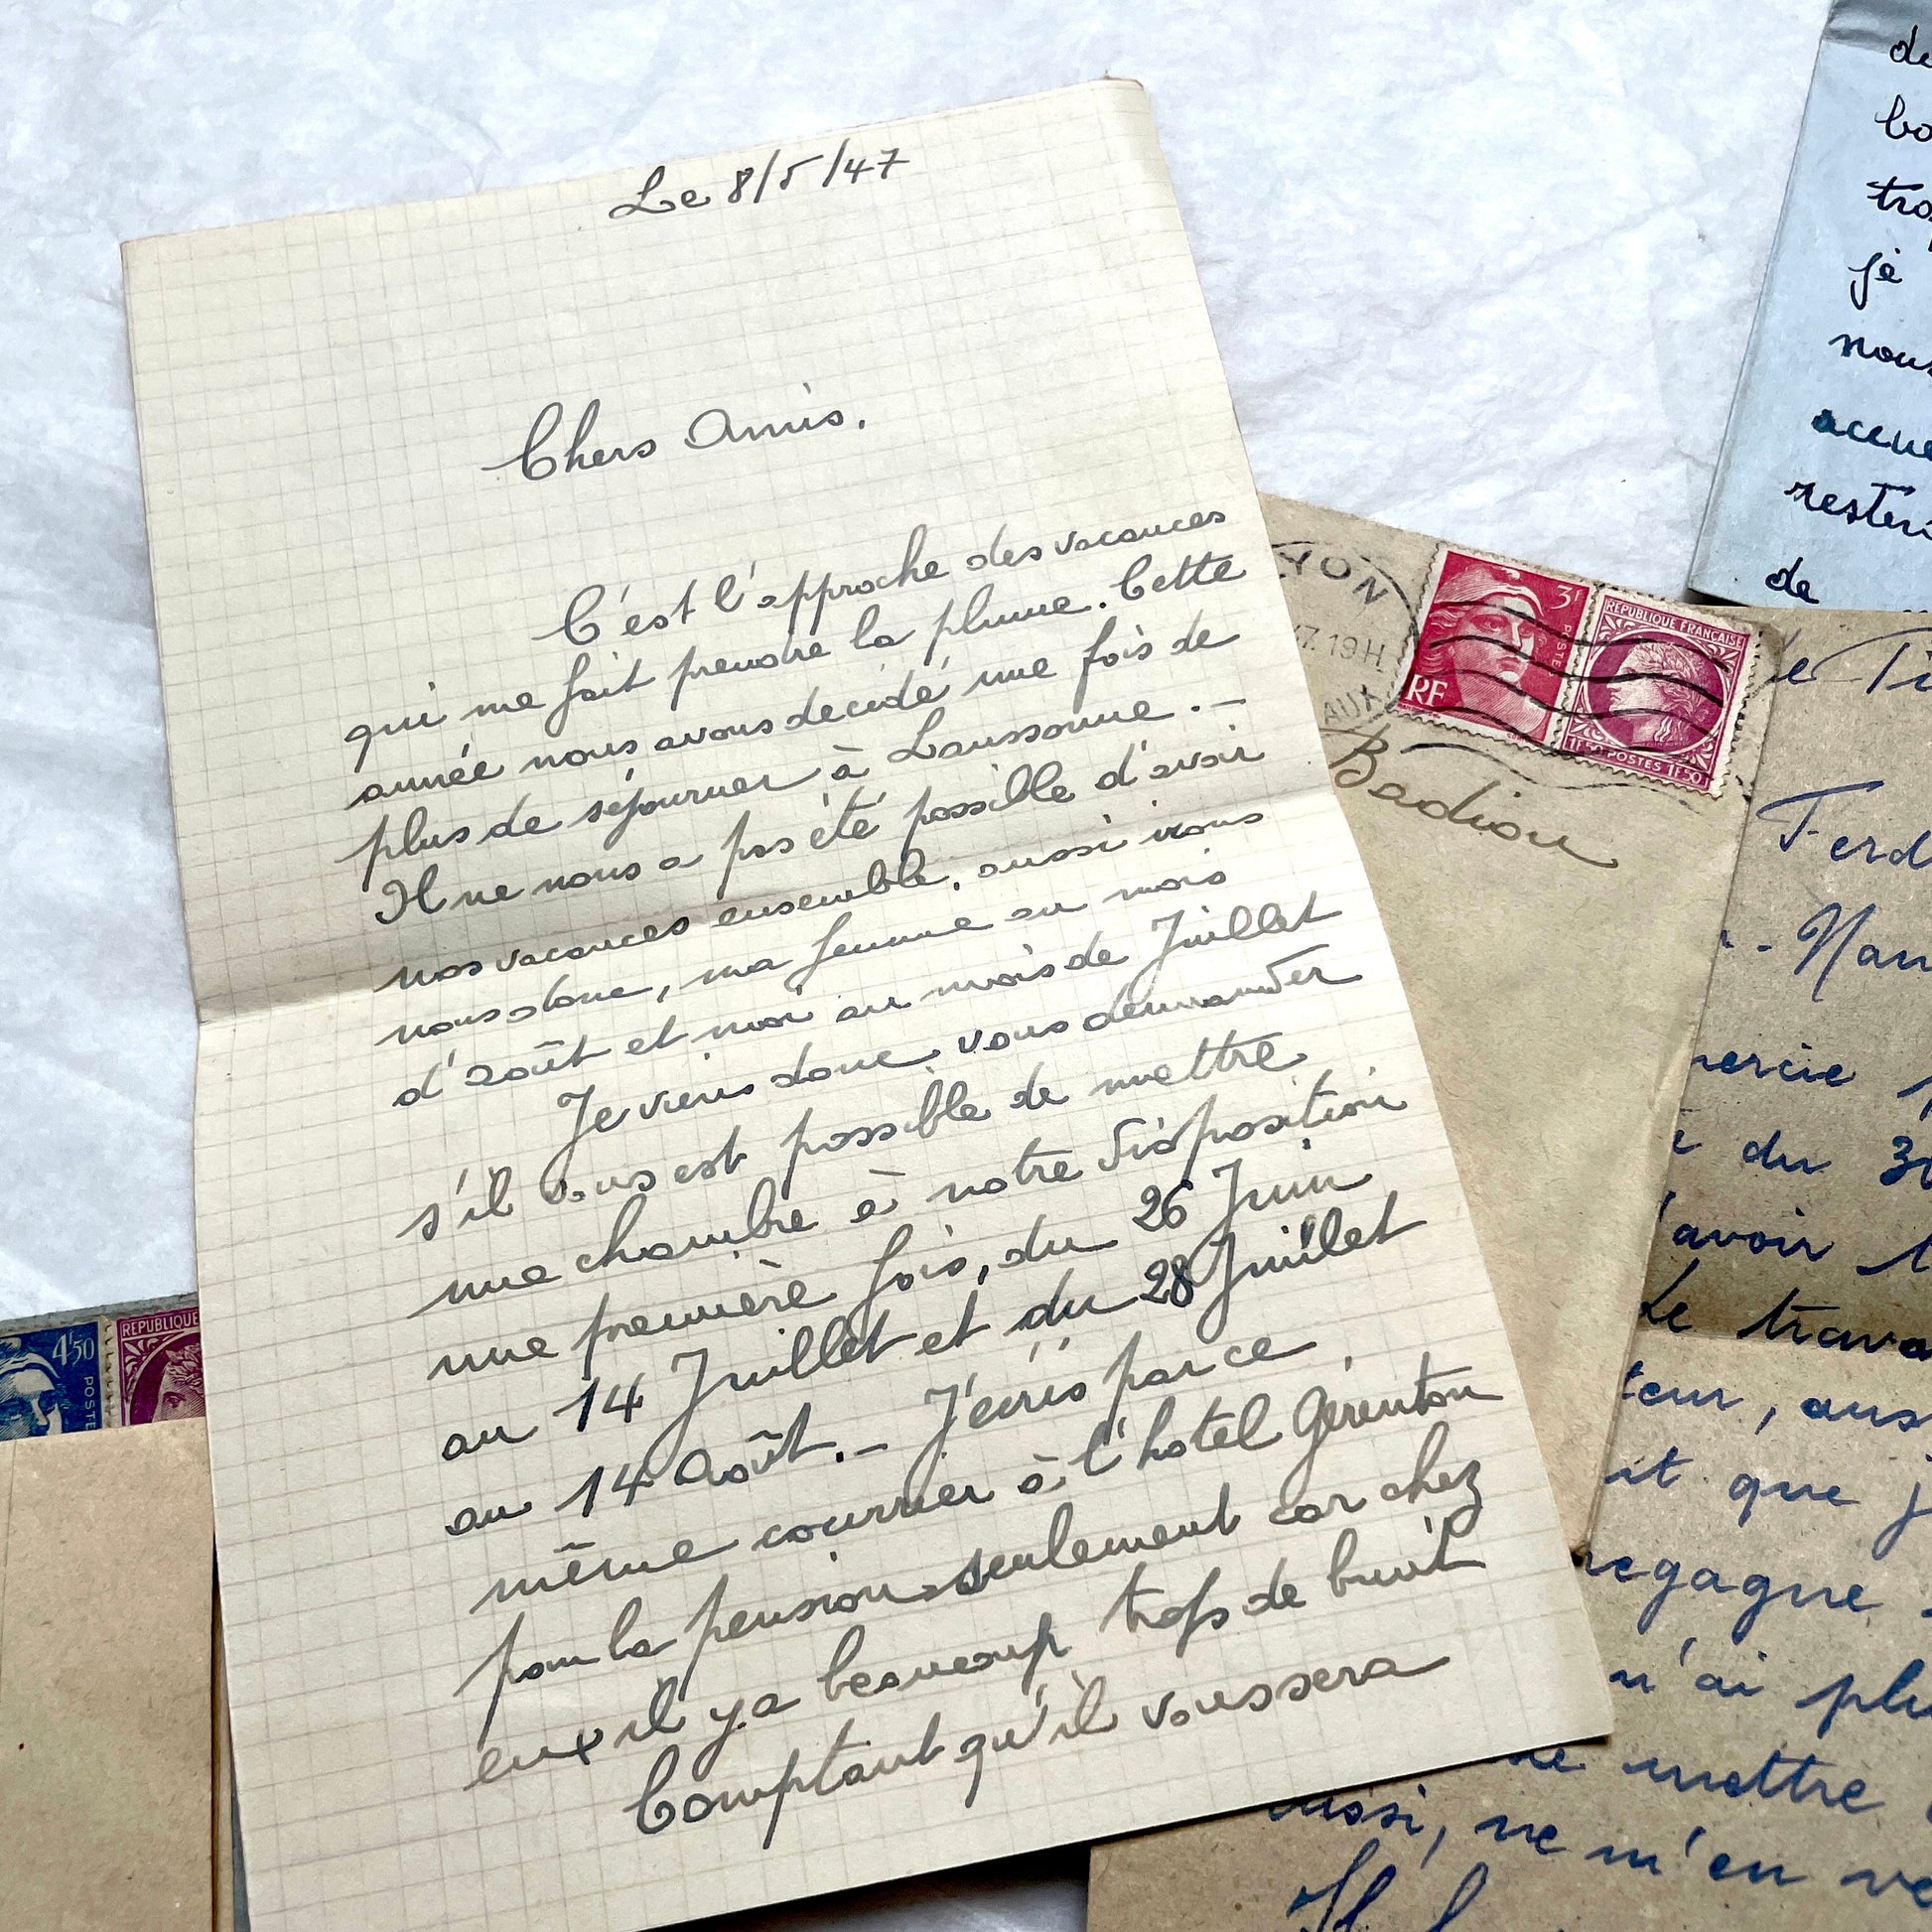 Le 8/5/47
Chers Amis.
C'est l'approche des vacances
qui me fait prendre la plume. Cette
année nous avons décidé une fois de
plus de séjourner à Laussonne. -
Il ne nous a pas été possible d'avoir
nos vacances ensemble, aussi irons
nous donc, ma femme au mois
d'août et moi au mois de Juillet
Je viens donc vous demander
s'il vous est possible de mettre
une chambre à notre disposition
une première fois, du 26 Juin
au 14 Juillet et du 28 Juillet
au 14 Août. - J'écris par ce
même courrier à l'hotel Gérenton
pour la pension seulement car chez
eux il y a beaucoup trop de bruit
Comptant qu'il vous sera
YON
47. 19H
AUX
3F
POSTES
RF
REPUBLIQUE FRANÇAISE
1F50 POSTES 1F50
Badiou
4F50
POSTE
REPUBLIQUE
de
bo
tro
je
nous
accue
de
le Ti
Ferd
Nan
mercie
du 30
avoir
de trava
teur, aus
nt que j
regagne
n'ai plu
mettre
aussi, ne m'en ve
Il